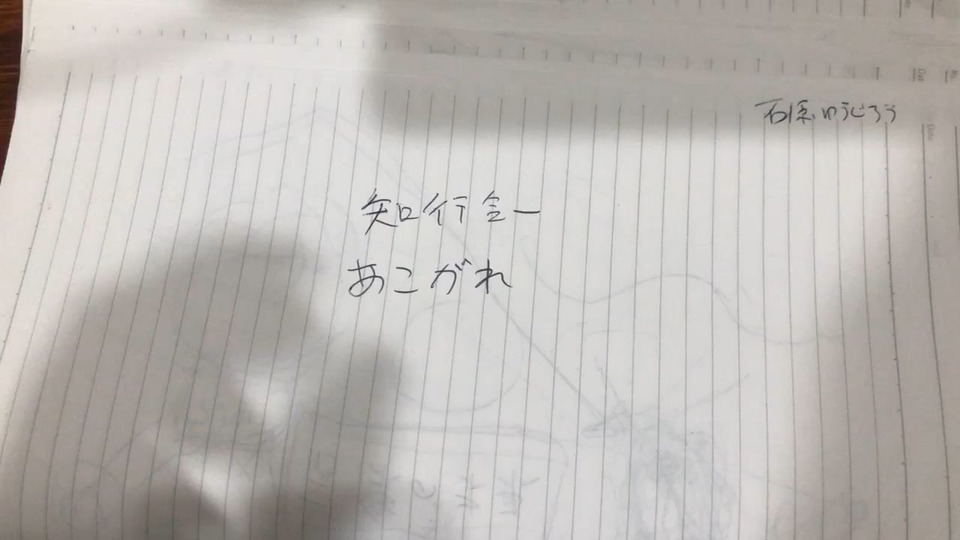 石原ゆうじろう
知行合一
あこがれ